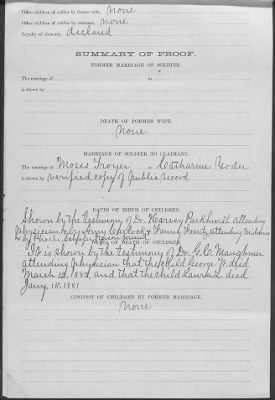 Other children of soldier by former wife, None
Other children of soldier by claimant, None
Loyalty of claimant, declared
SUMMARY OF PROOF.
FORMER MARRIAGE OF SOLDIER.
The marriage of to
is shown by
DEATH OF FORMER WIFE.
None
MARRIAGE OF SOLDIER TO CLAIMANT.
The marriage of Moses Troyer to Catharine Yoder
is shown by verified copy of public record
DATES OF BIRTH OF CHILDREN.
Shown by the testimony of Dr. Harvey Parkhurst attending
physician & by Anny & Fanny attending
& by
DATES OF DEATH OF CHILDREN.
It is shown by the testimony of Dr. G. C. Maughmer
attending physician that the child George W. died
March and that the child died
Jany 15. 1881
CUSTODY OF CHILDREN BY FORMER MARRIAGE.
None